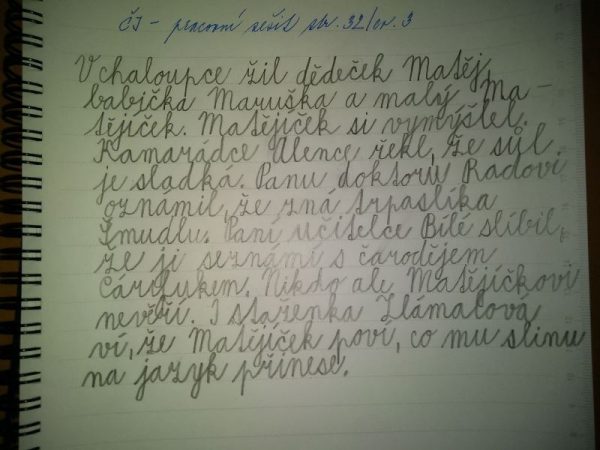 ČJ - pracovní sešit str. 32/cv. 3
V chaloupce žil dědeček Matěj,
babička Maruška a malý Ma-
tějíček. Matějíček si vymýšlel.
Kamarádce Alence řekl, že sůl
je sladká. Panu doktoru Radovi
oznámil, že zná trpaslíka
Šmudlu. Paní učitelce Bílé slíbil,
že ji seznámí s čarodějem
Čárytukem. Nikdo ale Matějíčkovi
nevěří. I stařenka Zlámalová
ví, že Matějíček poví, co mu slinu
na jazyk přinese.